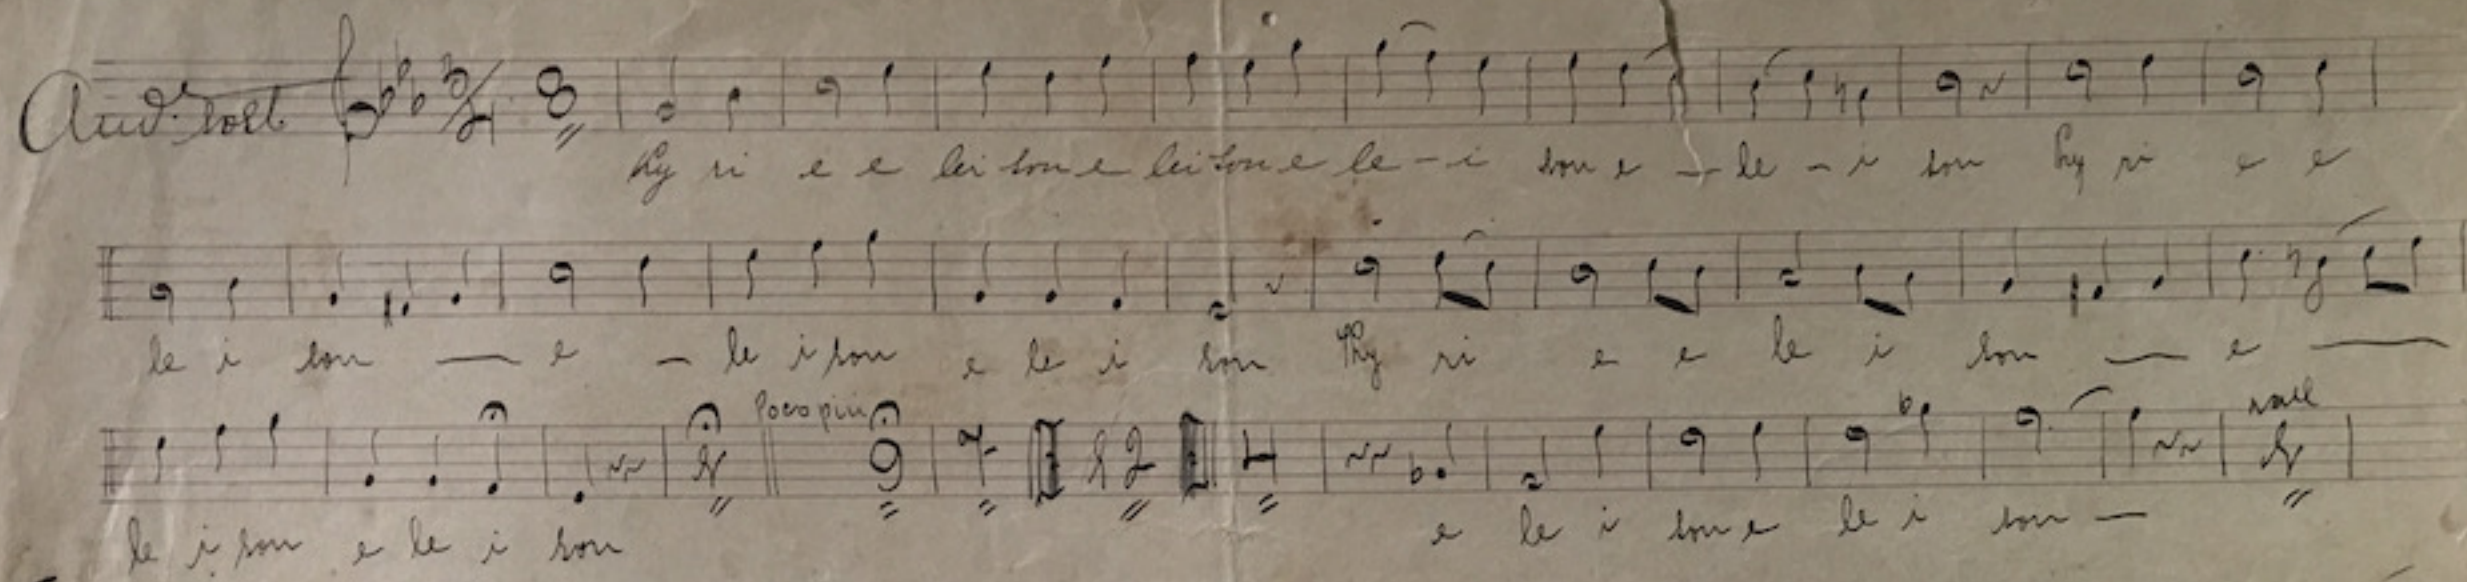 And.te sost 3/4 8
Ky ri e e lei son e lei son e le - i son e - le - i son Ky ri e e
le i son — e — le i son e le i son Ky ri e e le i son — e —
Poco più rall
9 7 12 4
le i son e le i son e le i son e le i son —